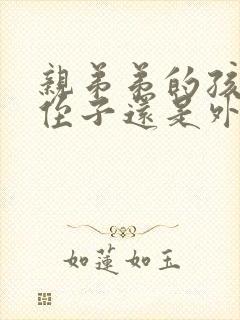 親弟弟的孩
侄子還是外
如蓮如玉